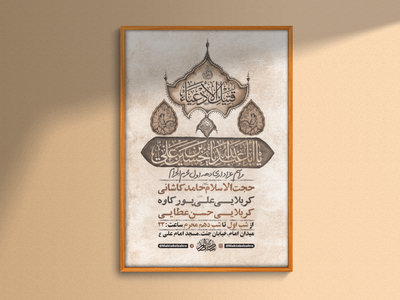 قتیل الأدعیاء
یا اباعبدالله یا حسین بن علی
مراسم عزاداری دهه اول محرم الحرام
حجت الاسلام حامد کاشانی
کربلایی علی پورکاوه
کربلایی حسن عطایی
از شب اول تا شب دهم محرم ساعت: ۲۳
میدان امام، خیابان جنت، مسجد امام علی ع